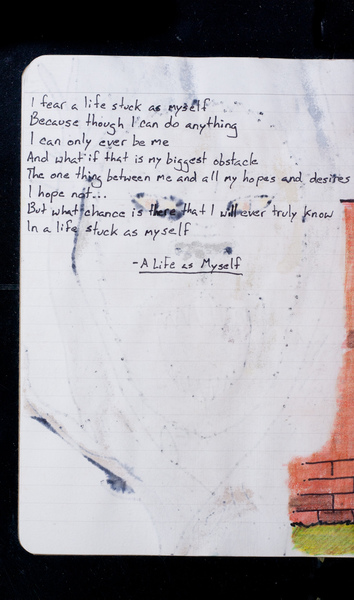 I fear a life stuck as myself
Because though I can do anything
I can only ever be me
And what if that is my biggest obstacle
The one thing between me and all my hopes and desires
I hope not...
But what chance is there that I will ever truly know
In a life stuck as myself
- A Life as Myself